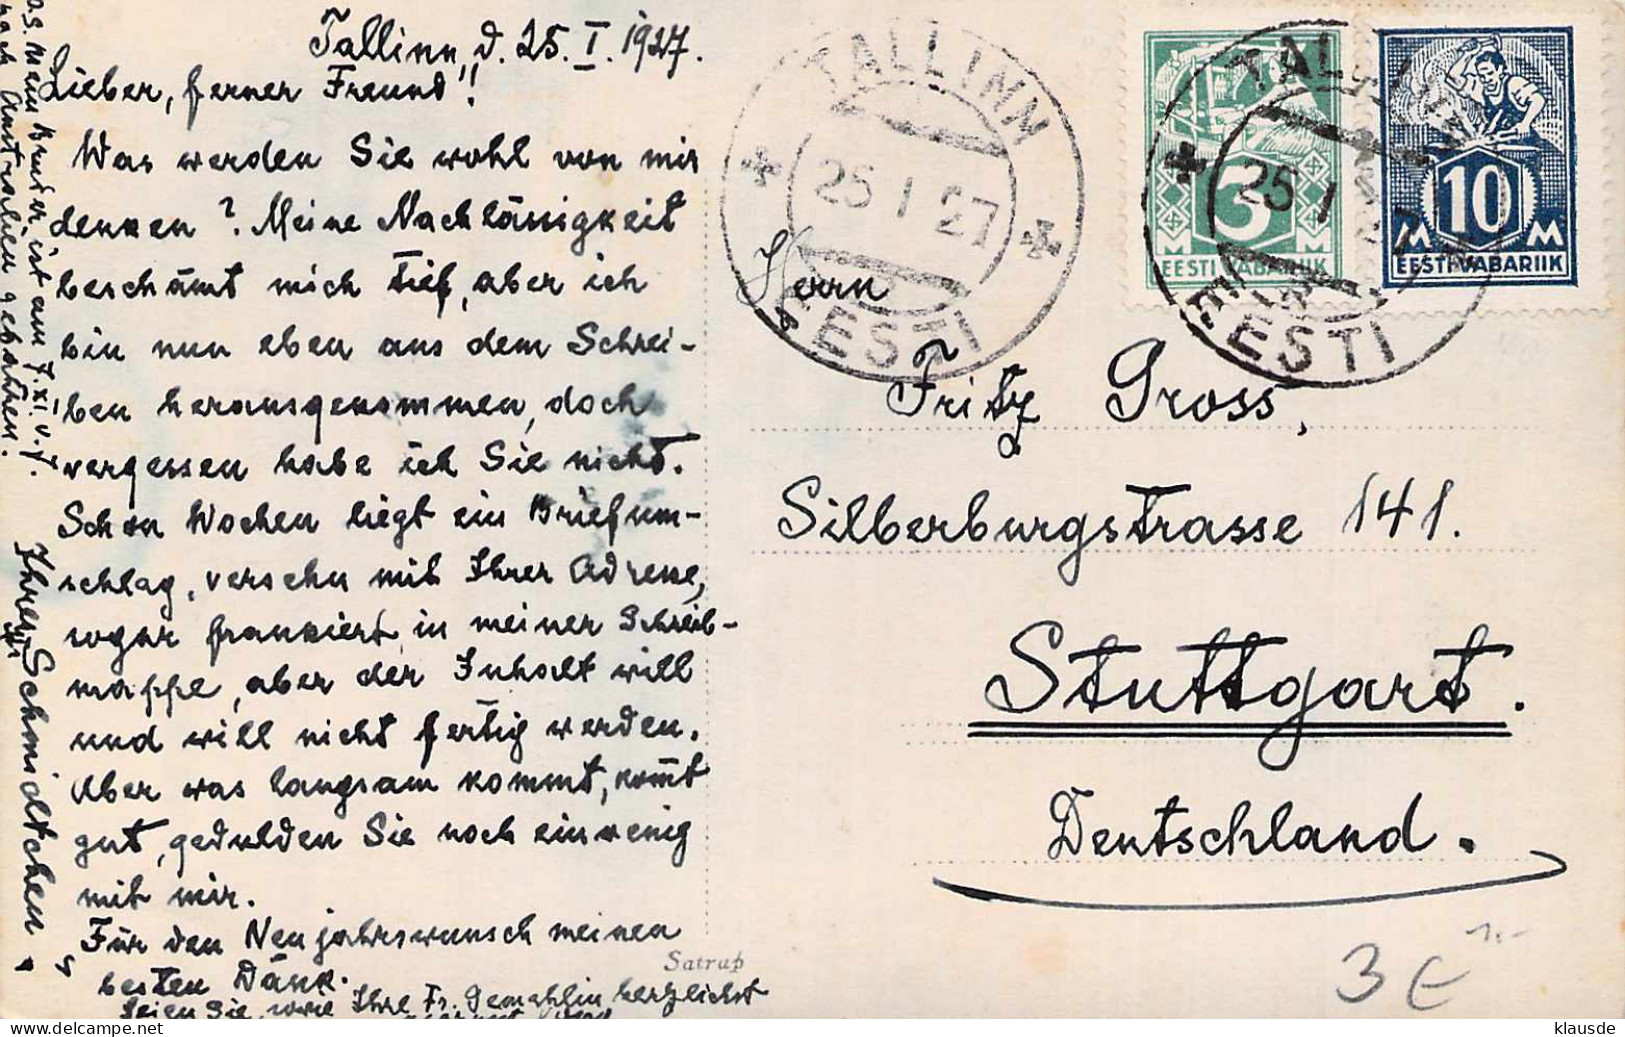 Tallinn, d. 25. I. 1927.
Lieber, ferner Freund!
Was werden Sie wohl von mir
denken? Meine Nachlässigkeit
beschämt mich tief, aber ich
bin nun eben aus dem Schrei-
ben herausgekommen, doch
vergessen habe ich Sie nicht.
Schon Wochen liegt ein Briefum-
schlag, versehn mit Ihrer Adresse,
sogar frankiert in meiner Schreib-
mappe, aber der Inhalt will
und will nicht fertig werden.
Aber was langsam kommt, kom̄t
gut, gedulden Sie noch ein wenig
mit mir.
Für den Neujahrswunsch meinen
besten Dank.
Seien Sie, wie Ihre Fr. Gemahlin herzlichst
gegrüsst von
Ihrer Schmidtchen.
P.S. Mein Bruder ist am 7. XI. v. J.
nach Australien gefahren.
Satrap
TALLINN
25 I 27
EESTI
3
M M
EESTI VABARIIK
TALLINN
25 I 27
EESTI
10
M M
EESTI VABARIIK
Herrn
Fritz Gross,
Silberburgstrasse 141.
Stuttgart.
Deutschland.
3 €
klausde